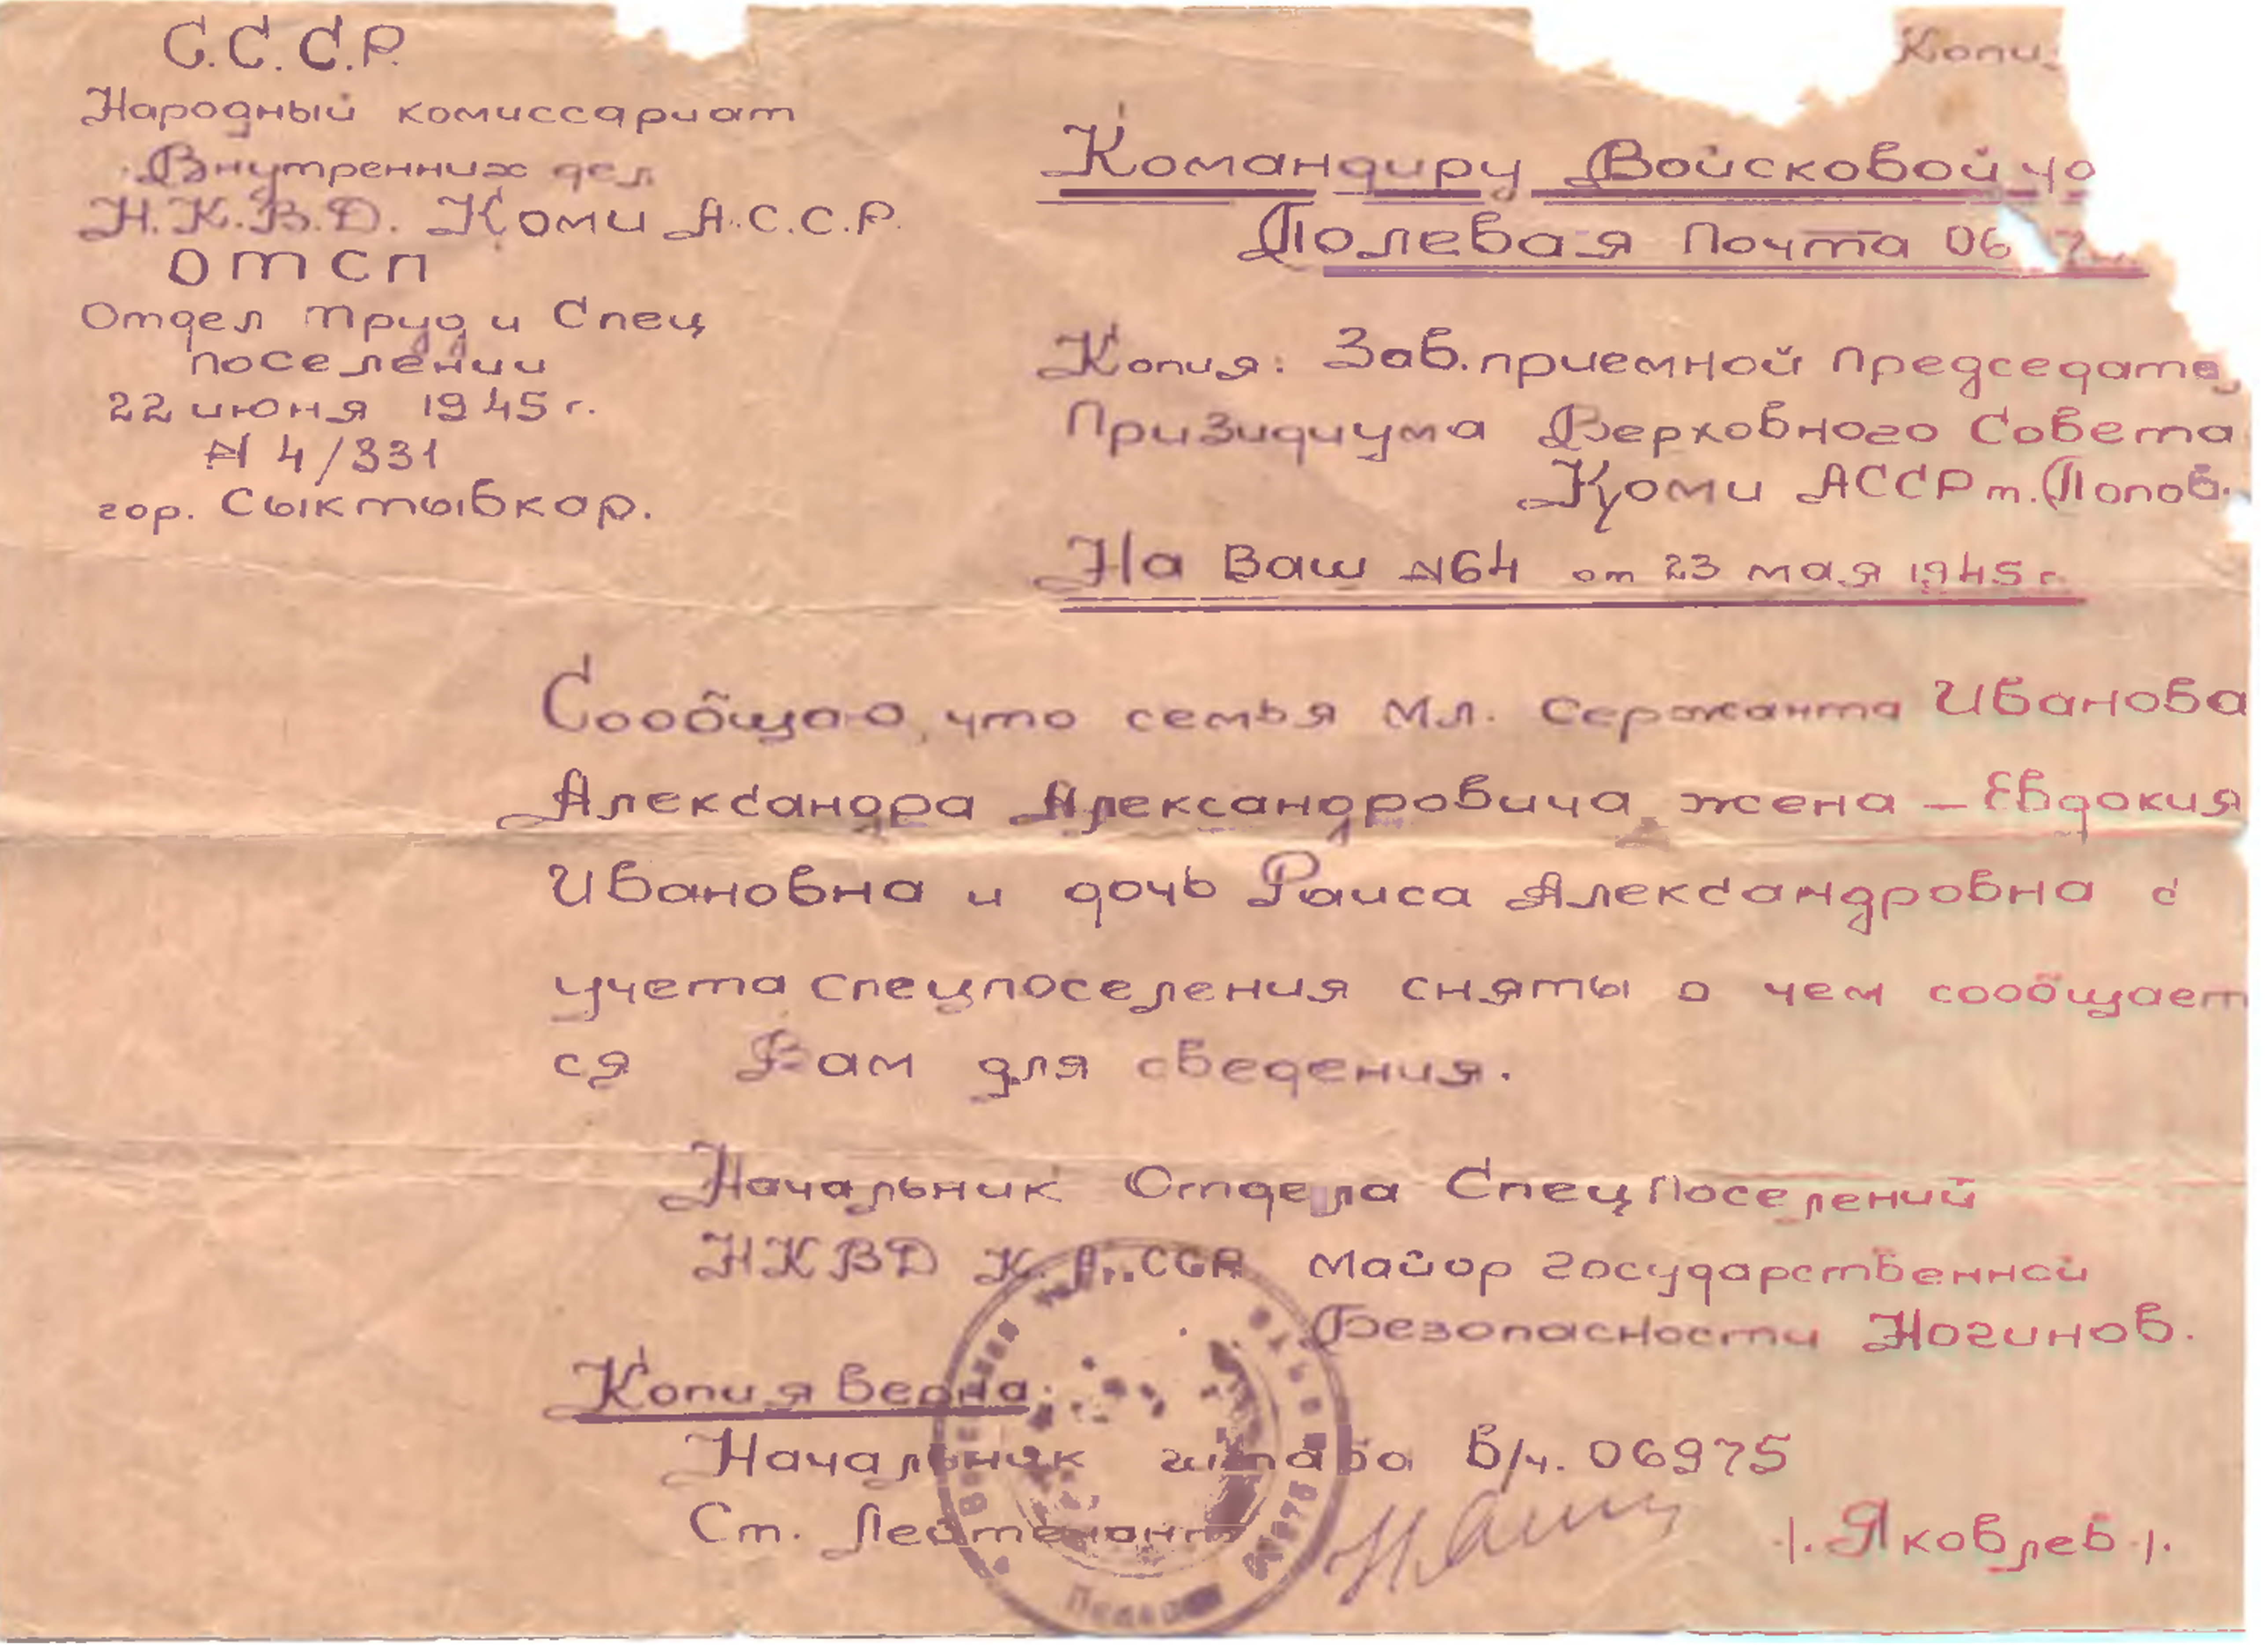 С.С.С.Р.
Народный комиссариат
Внутренних дел
Н.К.В.Д. Коми А.С.С.Р.
ОТСП
Отдел Труд и Спец
поселении
22 июня 1945 г.
№ 4/331
гор. Сыктывкар.
Копи
Командиру Войсковой ча
Полевая Почта 06
Копия: Зав. приемной Председате
Призидиума Верховного Совета
Коми АССР т. Попов.
На Ваш №64 от 23 мая 1945 г
Сообщаю, что семья Мл. Сержанта Иванова
Александра Александровича жена – Евдокия
Ивановна и дочь Раиса Александровна с
учета спецпоселения сняты о чем сообщает
ся Вам для сведения.
Начальник Отдела СпецПоселений
НКВД К.А.ССР Майор государственной
Безопасности Ногинов.
Копия верна:
Начальник штаба в/ч. 06975
Ст. Лейтенант
/. Яковлев ./.